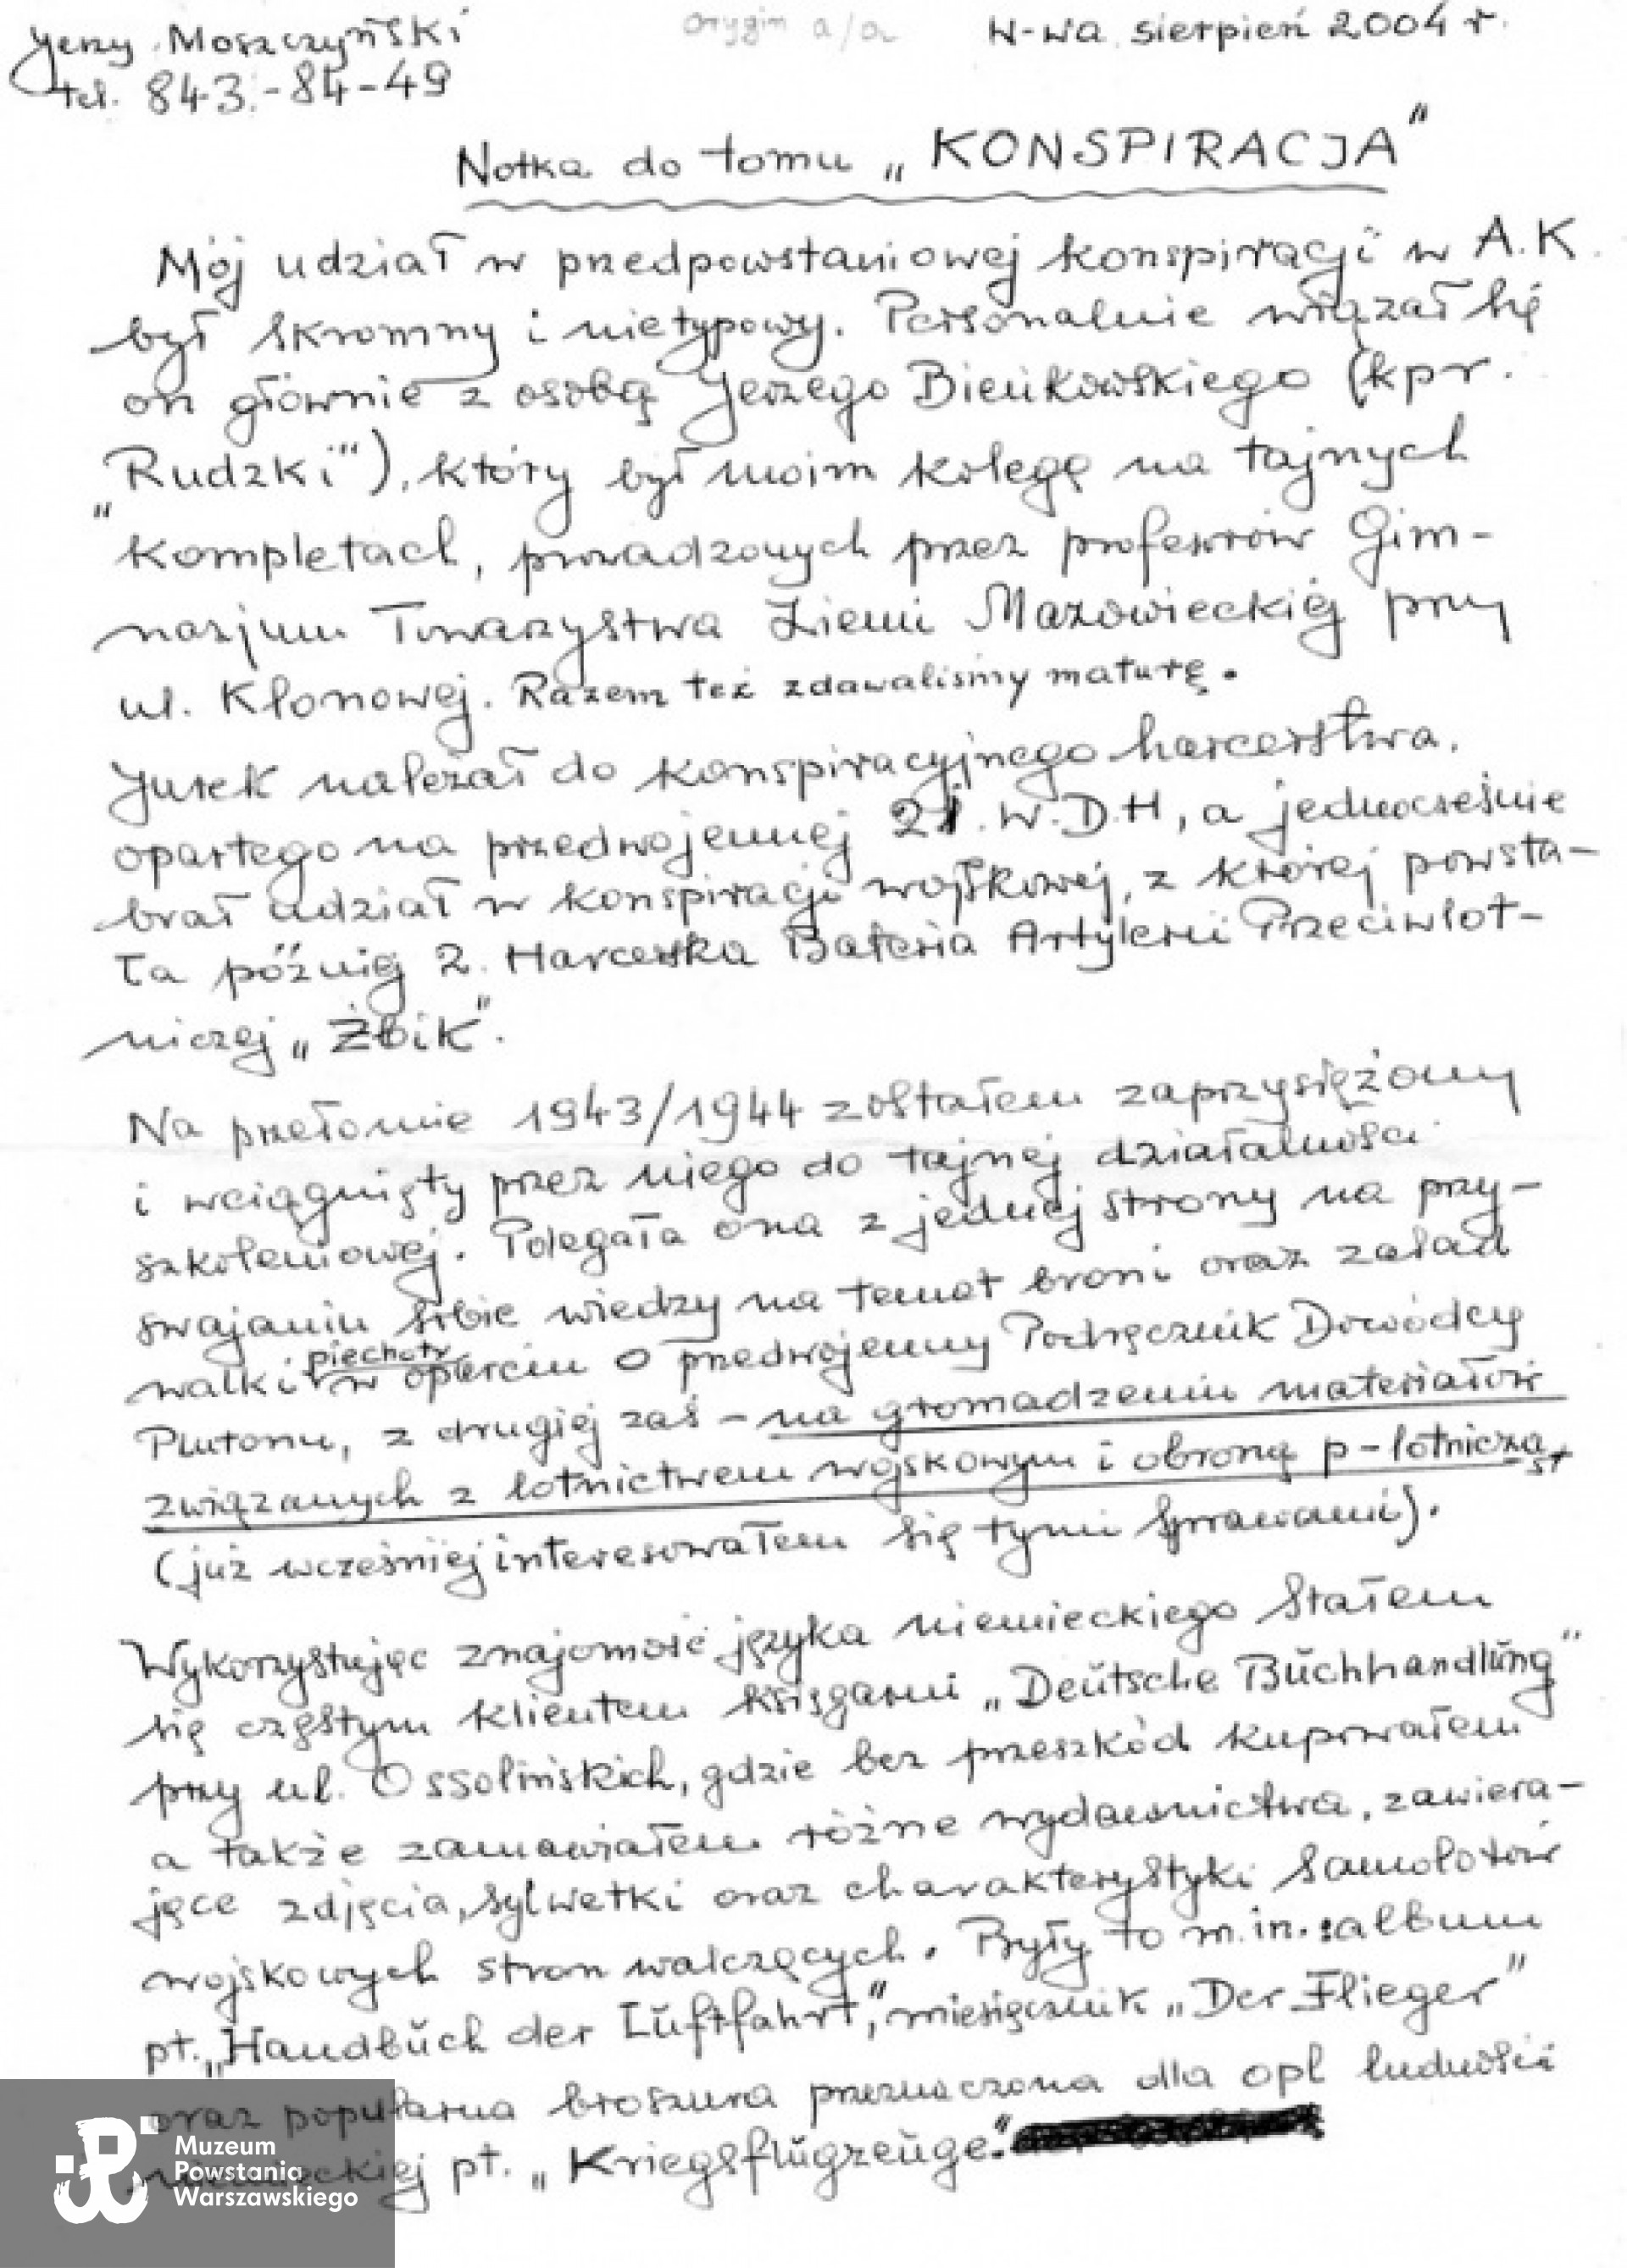 Jerzy Moszczyński
tel. 843-84-49
orygin a/a
W-wa sierpień 2004 r.
Notka do tomu „KONSPIRACJA"
Mój udział w przedpowstaniowej konspiracji w A.K.
był skromny i nietypowy. Personalnie wiązał się
on głównie z osobą Jerzego Bieńkowskiego (kpr.
„Rudzki"), który był moim kolegą na tajnych
kompletach, prowadzonych przez profesorów Gim-
nazjum Towarzystwa Ziemi Mazowieckiej przy
ul. Klonowej. Razem też zdawaliśmy maturę.
Jurek należał do konspiracyjnego harcerstwa,
opartego na przedwojennej 21. W.D.H, a jednocześnie
brał udział w konspiracji wojskowej, z której powsta-
ła później 2. Harcerska Bateria Artylerii Przeciwlot-
niczej „Żbik".
Na przełomie 1943/1944 zostałem zaprzysiężony
i wciągnięty przez niego do tajnej działalności
szkoleniowej. Polegała ona z jednej strony na przy-
swajaniu sobie wiedzy na temat broni oraz zasad
walki piechoty w oparciu o przedwojenny Podręcznik Dowódcy
Plutonu, z drugiej zaś – na gromadzeniu materiałów
związanych z lotnictwem wojskowym i obroną p-lotniczą
(już wcześniej interesowałem się tymi sprawami).
Wykorzystując znajomość języka niemieckiego stałem
się częstym klientem księgarni „Deutsche Buchhandlung"
przy ul. Ossolińskich, gdzie bez przeszkód kupowałem
a także zamawiałem różne wydawnictwa, zawiera-
jące zdjęcia, sylwetki oraz charakterystyki samolotów
wojskowych stron walczących. Były to m.in.: album
pt. „Handbuch der Luftfahrt", miesięcznik „Der Flieger"
oraz popularna broszura przeznaczona dla opl ludności
niemieckiej pt. „Kriegsflugzeuge".
Muzeum
Powstania
Warszawskiego